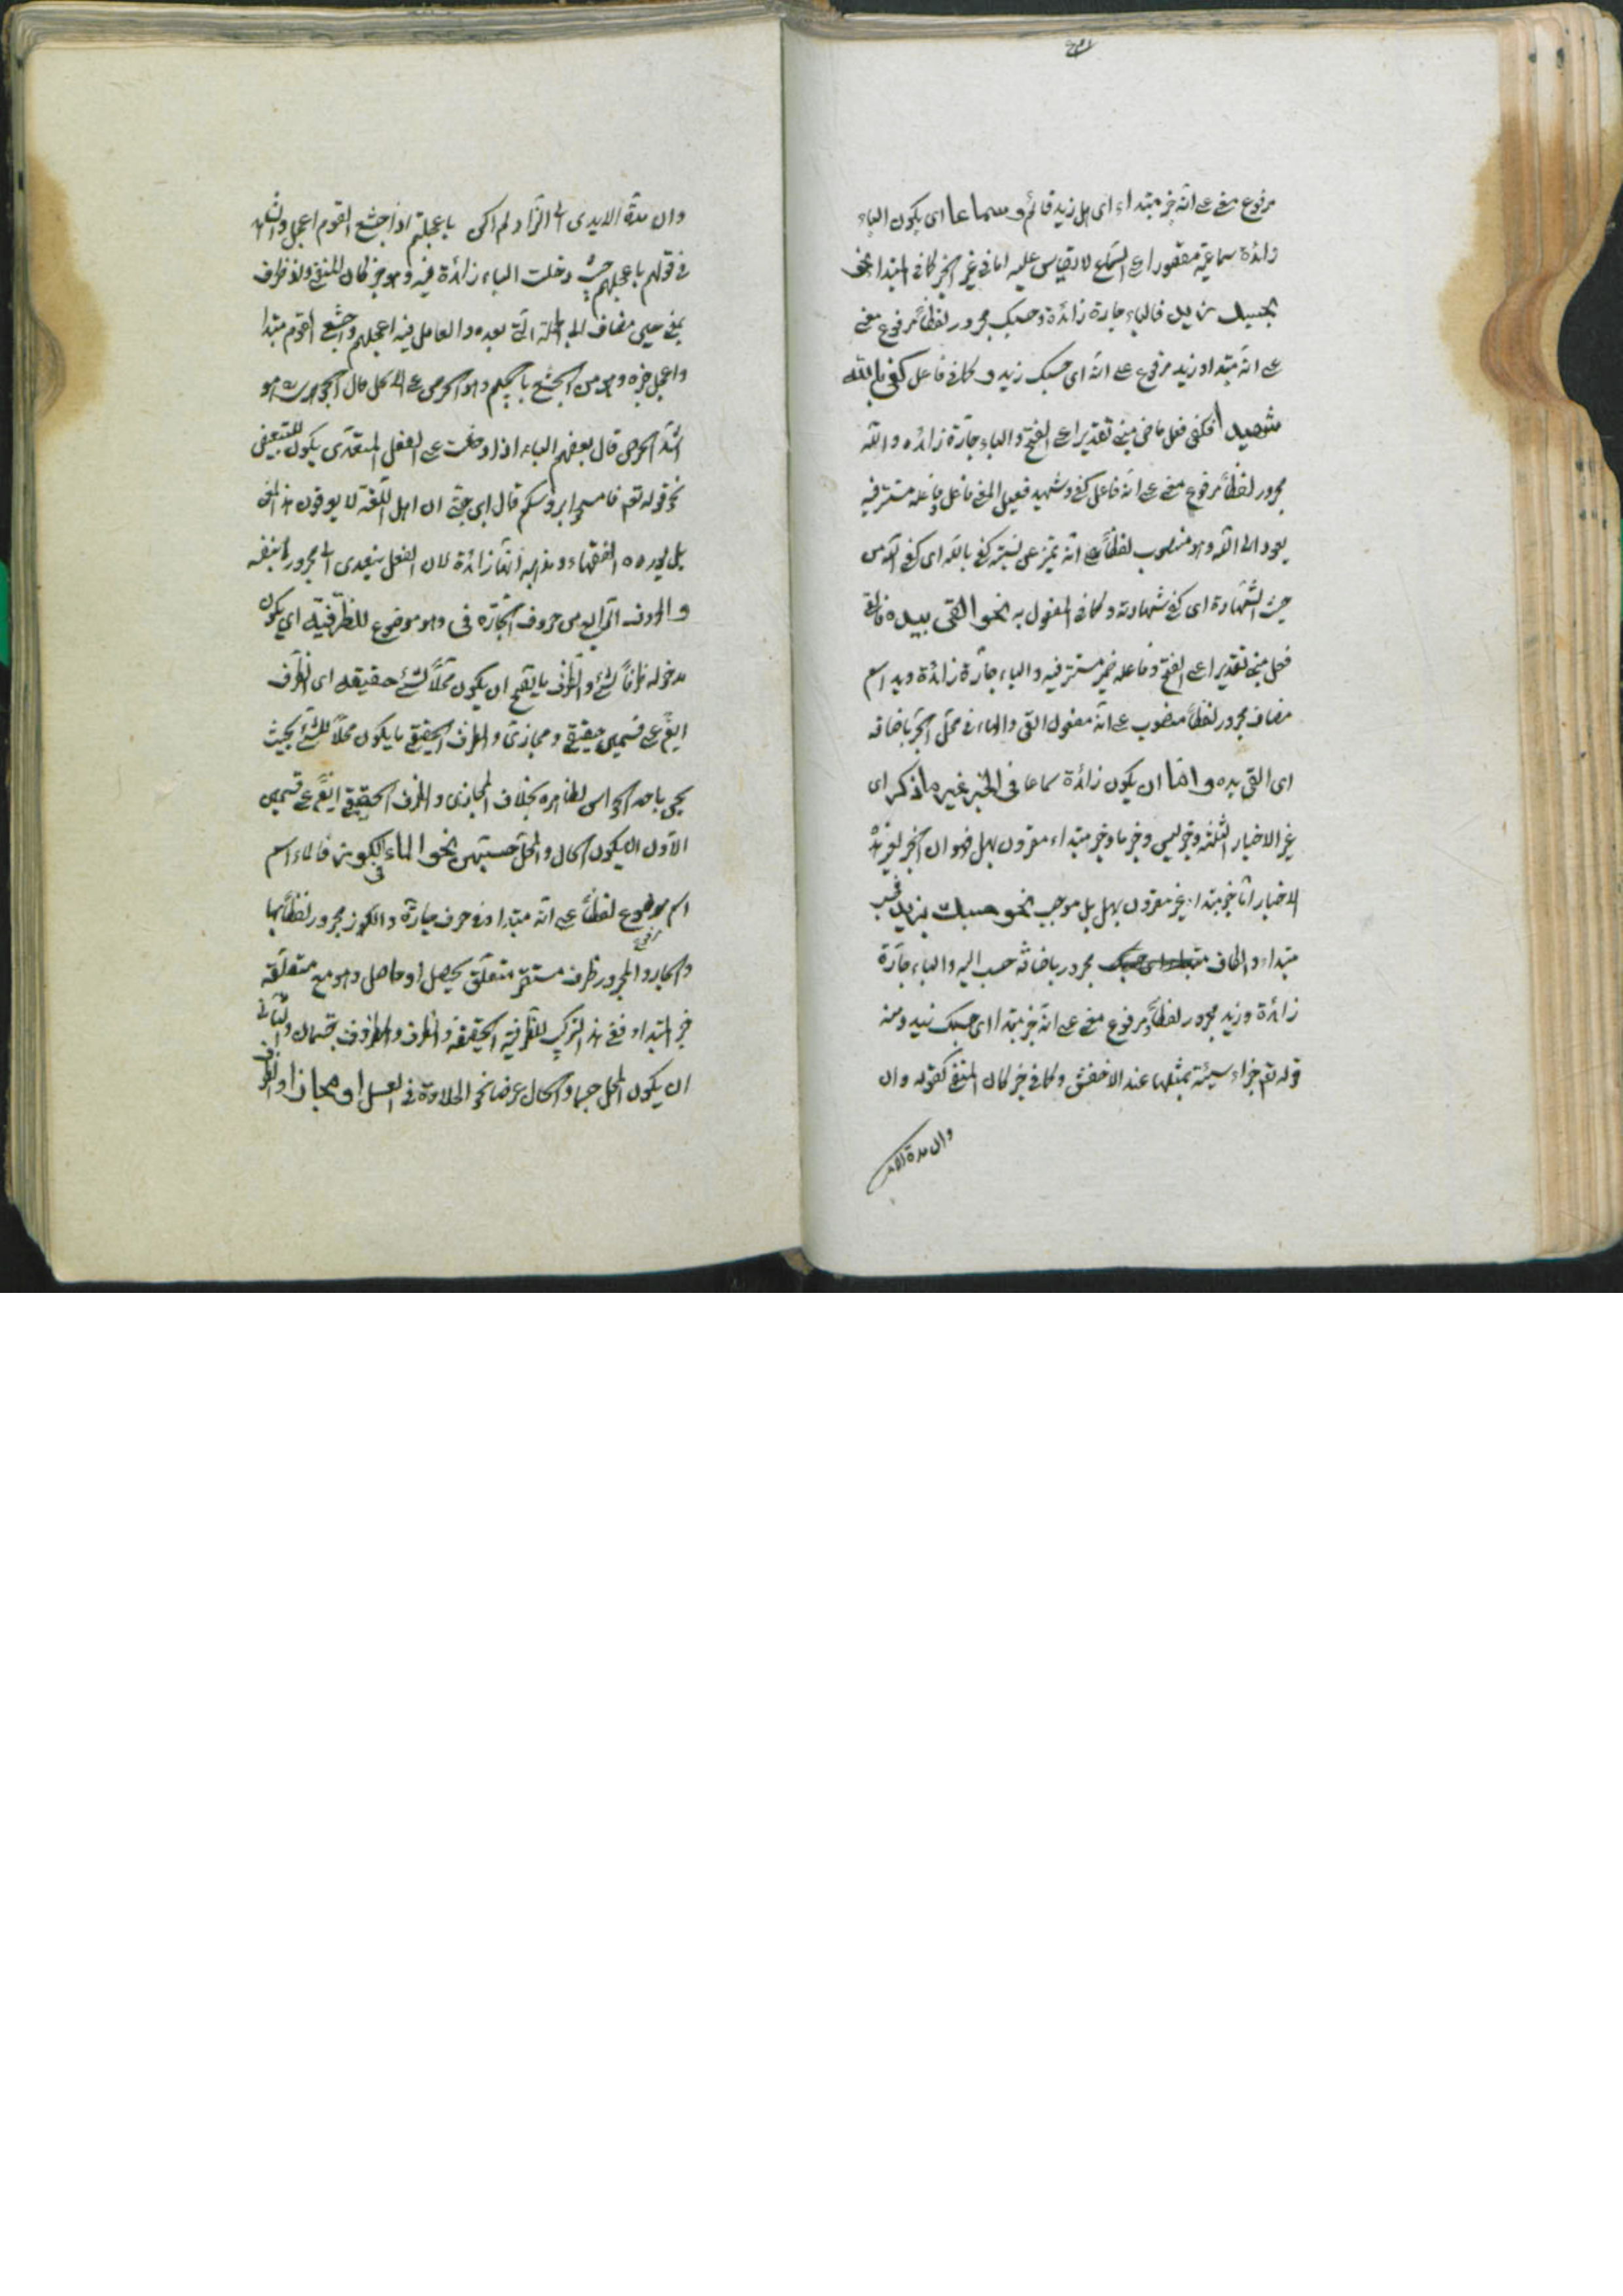 مرفوع معنى على انه خبر مبتداء اى هل زيد قائم و سماعا اى يكون الباء
زائدة سماعية مقصورا على السماع لا يقاس عليه اما فى غير الخبر كما فى المبتدا نحو
بحسبك زيد فالباء جارة زائدة وحسبك مجرور لفظاً مرفوع معنى
على انه مبتدا وزيد مرفوع على انه اى حسبك زيد و كما فى فاعل كفى بالله
شهيدا فكفى فعل ماض مبنى تقديرا على الفتح والباء جارة زائده والله
مجرور لفظاً مرفوع معنى على انه فاعل كفى وشهيد فعيل المعنى فاعل وفاعله مستتر فيه
يعود الى الله وهو منصوب لفظاً على انه تميز عن نسبة كفى بالله اى كفى الله من
حيث الشهادة اى كفى شهادته وكما فى المفعول به نحو القى بيده فالقى
فعل مبنى تقديرا على الفتح وفاعله ضمير مستتر فيه والباء جارة زائدة ويد اسم
مضاف مجرور لفظاً منصوب على انه مفعول القى والهاء فى محل الجر باضافه
اى القى يده و اما ان يكون زائدة سماعا فى الخبر غير ما ذكر اى
غير الاخبار الثلثة وخبر ليس وخبر ما وخبر مبتداء مقرون بهل فهو ان الخبر لغير هذه
الاخبار اما خبر مبتداء غير مقرون بهل بل موجب نحو حسبك بزيد فحسب
مبتداء والكاف مجرور باضافة حسب اليه والباء جارة
زائدة وزيد مجرور لفظاً ومرفوع معنى على انه خبر مبتدا اى حسبك زيد ومنه
قوله تعم جزاء سيئة بمثلها عند الاخفش وكما فى خبر كان المنفى كقوله وان
وان مدة الايدى
وان مدة الايدى الى الزاد لم اكن باعجلهم اذ اجشع القوم اعجل والشاهد
فى قولهم باعجلهم حيث دخلت الباء زائدة فيه وهو خبر كان المنفى واذ ظرف
بمعنى حين مضاف الى الجملة التى بعده والعامل فيه اعجلهم واجشع القوم مبتدا
واعجل خبره وهو من الجشع بالجيم وهو الحرص على الاكل قال الجوهرى هو
اشد الحرص قال بعضهم الباء اذا دخلت على الفعل المتعدى يكون للتبعيض
نحو قوله تعم فامسحوا برؤسكم قال ابن جنى ان اهل اللغة لا يعرفون هذا المعنى
بل يورده الفقهاء ومذهبه انها زائدة لان الفعل يتعدى الى مجرورها بنفسه
و الحرف الرابع من حروف الجارة فى وهو موضوع للظرفية اى يكون
مدخوله ظرفاً لشئ والظرف ما يقع ان يكون محلاً لشئ حقيقه اى الظرف
ايضً على قسمين حقيقى ومجازى والظرف الحقيقى ما يكون محلاً للشئ بحيث
يحس باحد الحواس الظاهره بخلاف المجازى والظرف الحقيقى ايضً على قسمين
الاول ان يكون الحال والمحل جسمين نحو الماء فى الكوز فالماء اسم
اسم مرفوع لفظاً على انه مبتدا وفى حرف جارة والكوز مجرور لفظاً بها
والجار والمجرور ظرف مستقر متعلق بحصل او حاصل وهو مع متعلقه
خبر المبتدا وففى هذا التركيب للظرفية الحقيقة والظرف والمظروف جسمان والثانى
ان يكون المحل جسما والحال عرضا نحو الحلاوة فى العسل او مجازا والظرف